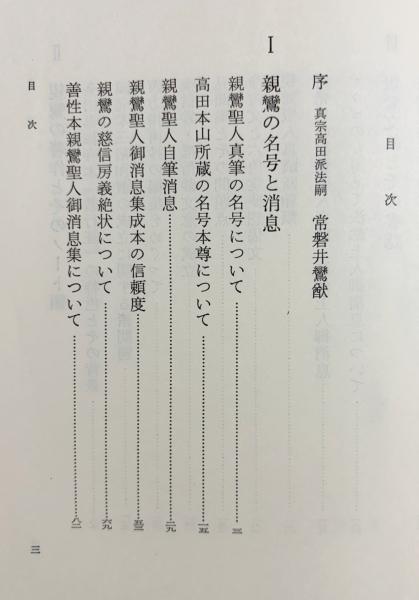 目次
序 真宗高田派法嗣 常磐井鸞猷
Ⅰ 親鸞の名号と消息
親鸞聖人真筆の名号について……三
高田本山所蔵の名号本尊について……一五
親鸞聖人自筆消息……二九
親鸞聖人御消息集成本の信頼度……五三
親鸞の慈信房義絶状について……六九
善性本親鸞聖人御消息集について……八二
目次
三